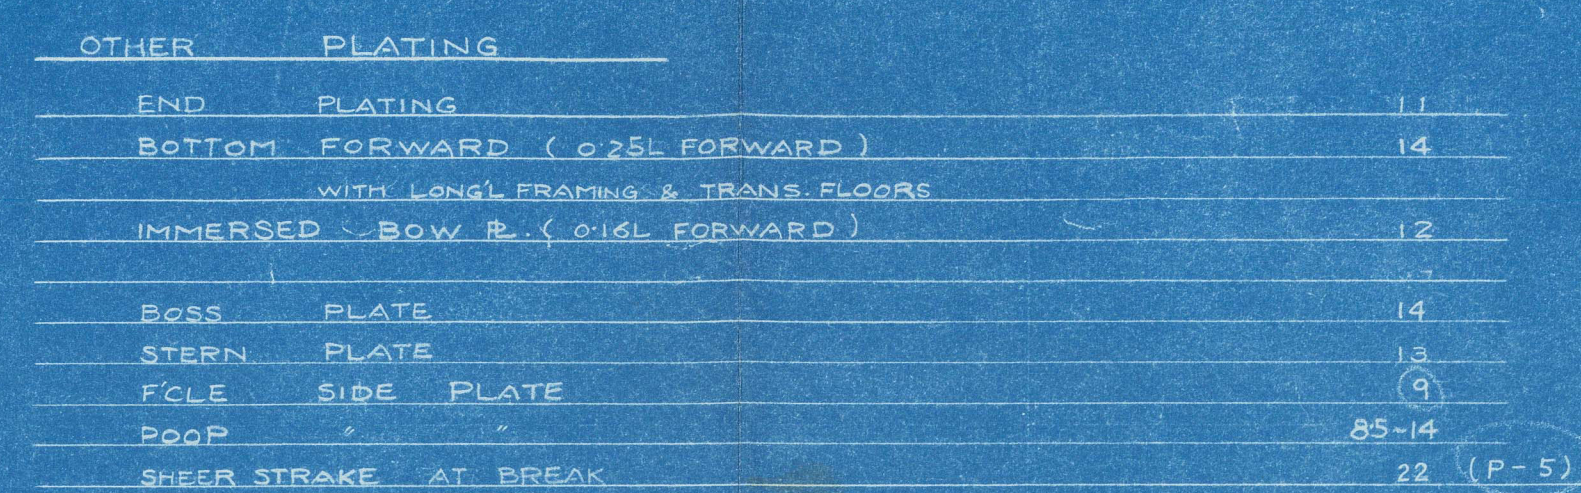 OTHER PLATING
END PLATING 11
BOTTOM FORWARD ( 0·25L FORWARD ) 14
WITH LONG'L FRAMING & TRANS. FLOORS
IMMERSED BOW PL. ( 0·16L FORWARD ) 12
BOSS PLATE 14
STERN PLATE 13
F'CLE SIDE PLATE 9
POOP " " 8·5~14
SHEER STRAKE AT BREAK 22 (P - 5)